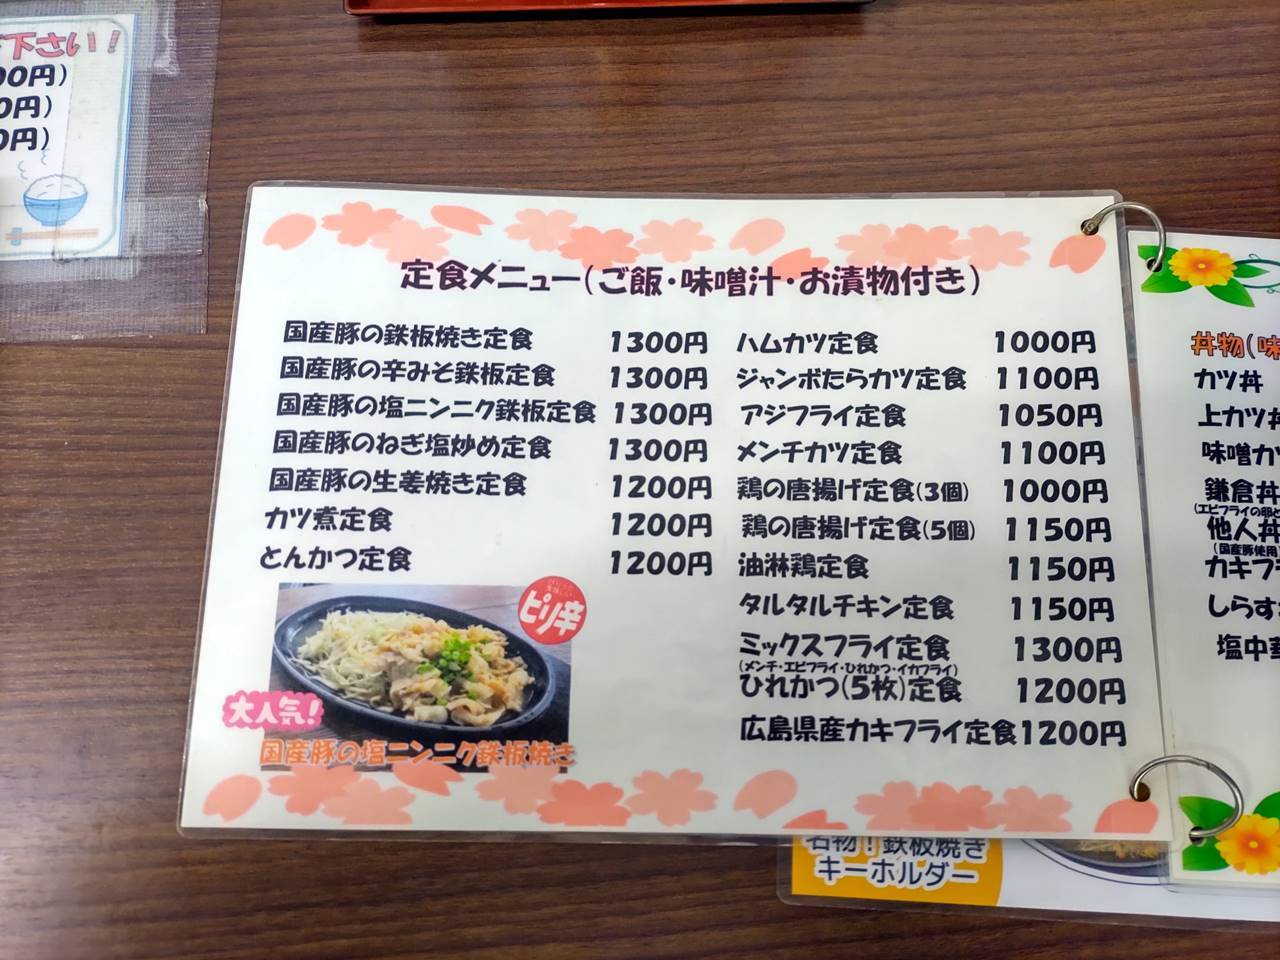 下さい！
00円）
0円）
0円）
定食メニュー（ご飯・味噌汁・お漬物付き）
国産豚の鉄板焼き定食 1300円
国産豚の辛みそ鉄板定食 1300円
国産豚の塩ニンニク鉄板定食 1300円
国産豚のねぎ塩炒め定食 1300円
国産豚の生姜焼き定食 1200円
カツ煮定食 1200円
とんかつ定食 1200円
ピリ辛
大人気！
国産豚の塩ニンニク鉄板焼き
ハムカツ定食 1000円
ジャンボたらカツ定食 1100円
アジフライ定食 1050円
メンチカツ定食 1100円
鶏の唐揚げ定食（3個） 1000円
鶏の唐揚げ定食（5個） 1150円
油淋鶏定食 1150円
タルタルチキン定食 1150円
ミックスフライ定食 1300円
（メンチ・エビフライ・ひれかつ・イカフライ）
ひれかつ（5枚）定食 1200円
広島県産カキフライ定食 1200円
丼物（味
カツ丼
上カツ丼
味噌カツ
鎌倉丼
（エビフライの卵と
他人丼
（国産豚使用）
カキフラ
しらす
塩中華
名物！鉄板焼き
キーホルダー